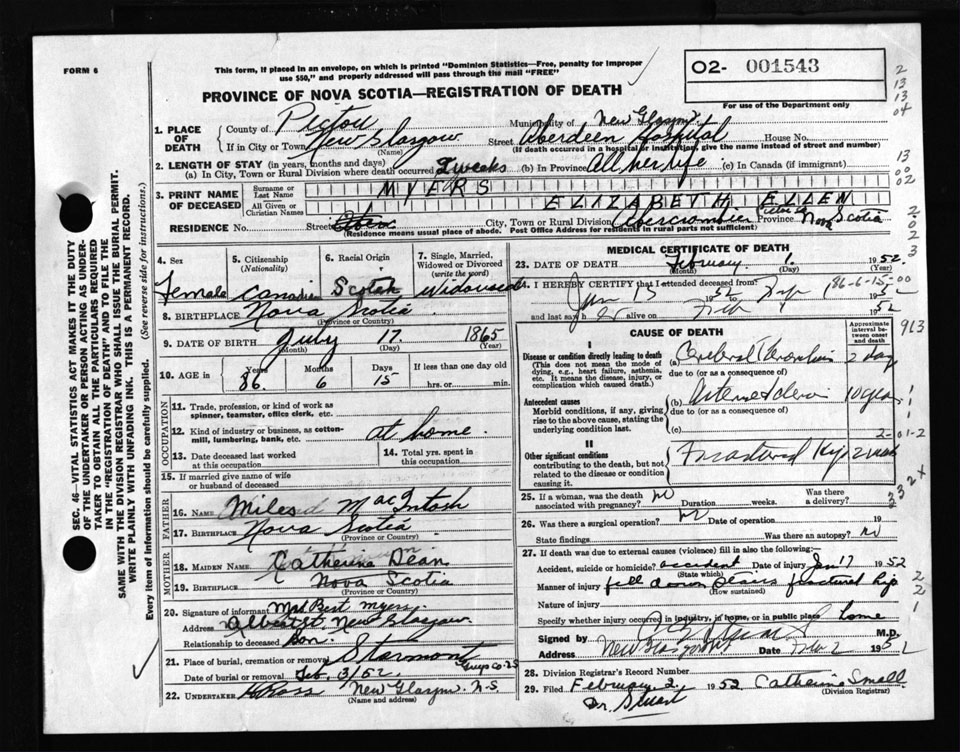 FORM 6
This form, if placed in an envelope, on which is printed "Dominion Statistics—Free, penalty for improper
use $50," and properly addressed will pass through the mail "FREE"
O2- 001543
For use of the Department only
PROVINCE OF NOVA SCOTIA—REGISTRATION OF DEATH
1. PLACE OF DEATH
County of Pictou
Municipality of New Glasgow
If in City or Town New Glasgow (Name)
Street Aberdeen Hospital House No.
(If death occurred in a hospital or institution, give the name instead of street and number)
2. LENGTH OF STAY (in years, months and days)
(a) In City, Town or Rural Division where death occurred 2 weeks (b) In Province All her life (c) In Canada (if immigrant)
3. PRINT NAME OF DECEASED
Surname or Last Name MYERS
All Given or Christian Names ELIZABETH ELLEN
RESIDENCE No. Street City, Town or Rural Division Abercrombie Pictou Co Province Nova Scotia
(Residence means usual place of abode. Post Office Address for residents in rural parts not sufficient)
4. Sex Female
5. Citizenship (Nationality) Canadian
6. Racial Origin Scotch
7. Single, Married, Widowed or Divorced (write the word) Widowed
8. BIRTHPLACE Nova Scotia
(Province or Country)
9. DATE OF BIRTH July 17 1865
(Month) (Day) (Year)
10. AGE in Years 86 Months 6 Days 15 If less than one day hrs. or min.
OCCUPATION
11. Trade, profession, or kind of work as spinner, teamster, office clerk, etc.
12. Kind of industry or business, as cotton-mill, lumbering, bank, etc. at home
13. Date deceased last worked at this occupation
14. Total yrs. spent in this occupation
15. If married give name of wife or husband of deceased
FATHER
16. NAME Miles MacIntosh
17. BIRTHPLACE Nova Scotia
(Province or Country)
MOTHER
18. MAIDEN NAME Catherine Dean
19. BIRTHPLACE Nova Scotia
(Province or Country)
20. Signature of informant Mrs Bert Myers
Address Albert St, New Glasgow
Relationship to deceased Son
21. Place of burial, cremation or removal Guys Co NS
Date of burial or removal Feb. 3/52
22. UNDERTAKER H Ross New Glasgow N.S.
(Name and address)
SEC. 46—VITAL STATISTICS ACT MAKES IT THE DUTY
OF THE UNDERTAKER OR PERSON ACTING AS UNDER-
TAKER TO OBTAIN ALL THE PARTICULARS REQUIRED
IN THE "REGISTRATION OF DEATH" AND TO FILE THE
SAME WITH THE DIVISION REGISTRAR WHO SHALL ISSUE THE BURIAL PERMIT.
WRITE PLAINLY WITH UNFADING INK. THIS IS A PERMANENT RECORD.
Every item of information should be carefully supplied. (See reverse side for instructions.)
MEDICAL CERTIFICATE OF DEATH
23. DATE OF DEATH February 1 1952
(Month) (Day) (Year)
24. I HEREBY CERTIFY that I attended deceased from:
Jan 15 1952 to 1952
and last saw her alive on Feb 1 1952
186-6-15-00
CAUSE OF DEATH
Approximate interval between onset and death
I
Disease or condition directly leading to death
(This does not mean the mode of dying, e.g., heart failure, asthenia, etc. It means the disease, injury, or complication which caused death.)
(a) Cerebral Thrombosis 2 days
due to (or as a consequence of)
Antecedent causes
Morbid conditions, if any, giving rise to the above cause, stating the underlying condition last.
(b) Arteriosclerosis 10 years
due to (or as a consequence of)
(c)
II
Other significant conditions
contributing to the death, but not related to the disease or condition causing it.
Fractured Hip 2 weeks
25. If a woman, was the death associated with pregnancy? no Duration weeks. Was there a delivery?
26. Was there a surgical operation? no Date of operation 19
State findings Was there an autopsy? no
27. If death was due to external causes (violence) fill in also the following:
Accident, suicide or homicide? accident Date of injury Jan 17 1952
(State which)
Manner of injury fell down stairs fractured hip
(How sustained)
Nature of injury
Specify whether injury occurred in industry, in home, or in public place home
Signed by M.D.
Address New Glasgow NS Date Feb 2 1952
28. Division Registrar's Record Number
29. Filed February 2 1952 Catherine Small
(Division Registrar)
Dr. Stuart